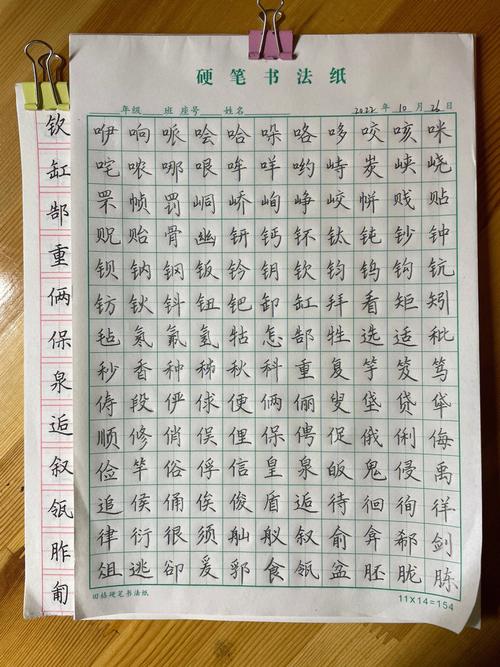 硬笔书法纸
年级 班 座号 姓名 2022 年 10 月 26 日
咿 响 哌 哙 哈 哚 咯 哆 咬 咳 咪
咤 哝 哪 哏 哞 咩 哟 峙 炭 峡 峣
罘 帧 罚 峒 峤 峋 峥 峧 帡 贱 贴
贶 贻 骨 幽 钘 钙 钚 钛 钝 钞 钟
钡 钠 钢 钣 钤 钥 钦 钧 钨 钩 钪
钫 钬 钭 钮 钯 卸 缸 拜 看 矩 矧
毡 氡 氟 氢 牯 怎 郜 牲 选 适 秕
秒 香 种 秭 秋 科 重 复 竽 笈 笃
俦 段 俨 俅 便 俩 俪 叟 垡 贷 牮
顺 修 俏 俣 俚 保 俜 促 俄 俐 侮
俭 竿 俗 俘 信 皇 泉 皈 鬼 侵 禹
追 侯 俑 俟 俊 盾 逅 待 徊 徇 徉
律 衍 很 须 舢 舣 叙 俞 弇 郗 剑
俎 逃 卻 爰 郛 食 瓴 盆 胚 胧 胨
田格硬笔书法纸 11×14=154
钦
缸
郜
重
俩
保
泉
逅
叙
瓴
胙
匍